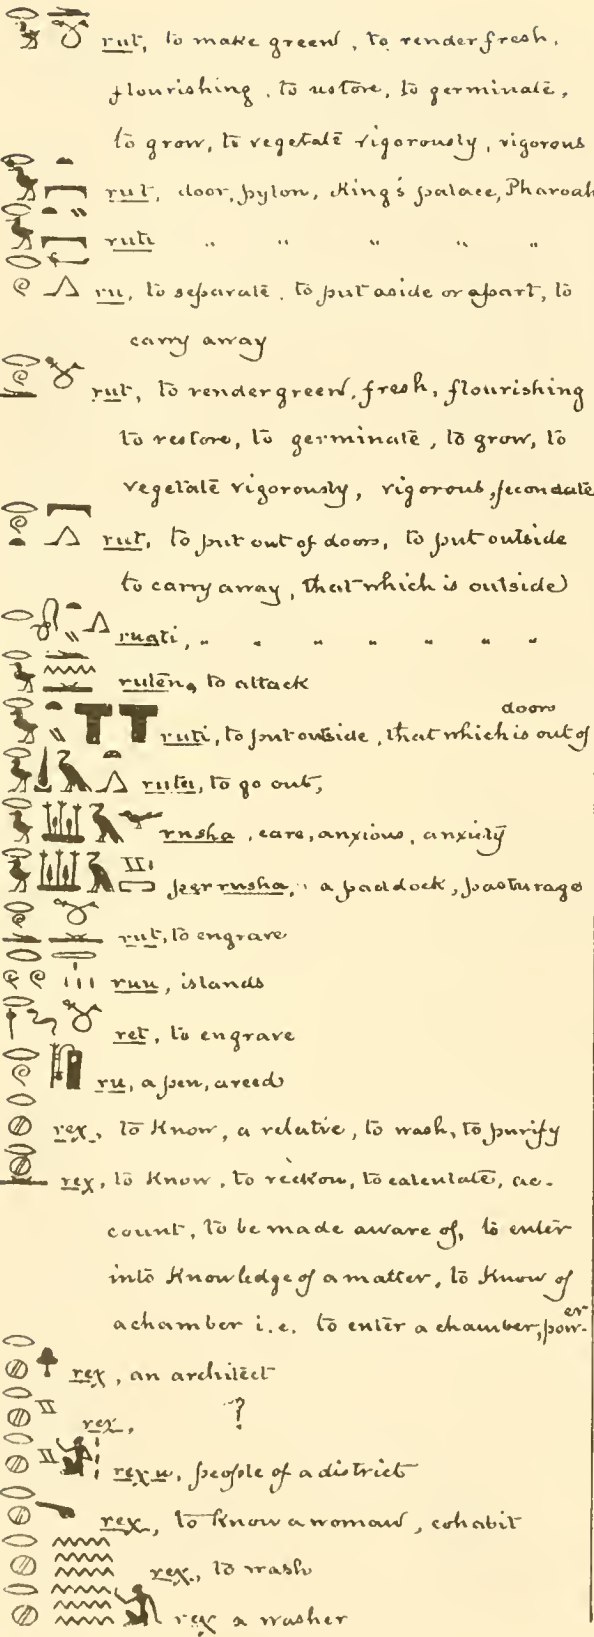 rut, to make green, to render fresh,
flourishing, to restore, to germinate,
to grow, to vegetate vigorously, vigorous
rut, door, pylon, King's palace, Pharoah
ruti " " " " "
ru, to separate, to put aside or apart, to
carry away
rut, to render green, fresh, flourishing
to restore, to germinate, to grow, to
vegetate vigorously, vigorous, fecondate
rut, to put out of doors, to put outside
to carry away, that which is outside
ruati, " " " " " " "
ruten, to attack
doors
ruti, to put outside, that which is out of
ruta, to go out,
rusha, care, anxious, anxiety
per rusha, a paddock, pasturage
rut, to engrave
ruu, islands
ret, to engrave
ru, a pen, a reed
rex, to Know, a relative, to wash, to purify
rex, to Know, to reckon, to calculate, ac-
count, to be made aware of, to enter
into Knowledge of a matter, to Know of
a chamber i.e. to enter a chamber, pow-
er
rex, an architect
rex, ?
rexu, people of a district
rex, to Know a woman, cohabit
rex, to wash
rex a washer